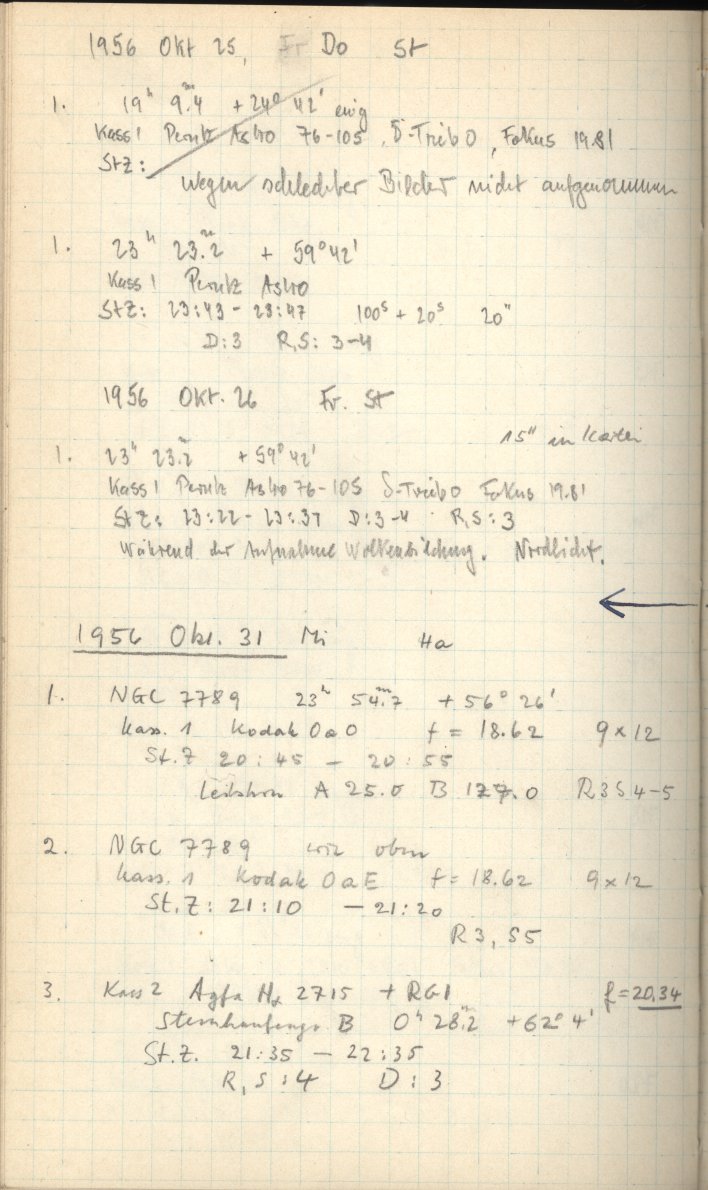 1956 Okt 25, Fr Do St
1. 19ʰ 9.ᵐ4 + 24° 42'
Kass 1 Perutz Astro 76-105, Fokus 19.81
StZ:
wegen schlechter Bilder nicht aufgenommen
1. 23ʰ 23.ᵐ2 + 59° 42'
Kass 1 Perutz Astro
StZ: 23:43 - 23:47 100ˢ + 20ˢ 20"
D:3 R,S: 3-4
1956 Okt. 26 Fr. St
15" in Kartei
1. 23ʰ 23.ᵐ2 + 59° 42'
Kass 1 Perutz Astro 76-105 Fokus 19.81
StZ: 23:22 - 23:37 D:3-4 R,S: 3
Während der Aufnahme Wolkenbildung. Nordlicht.
←
1956 Okt. 31 Mi Ha
1. NGC 7789 23ʰ 54.ᵐ7 + 56° 26'
Kass. 1 Kodak 0a0 f = 18.62 9 x 12
St.Z 20:45 - 20:55
Leitstern A 25.0 B 177.0 R3 S4-5
2. NGC 7789 wie oben
Kass. 1 Kodak 0aE f = 18.62 9 x 12
St.Z: 21:10 - 21:20
R3, S5
3. Kass 2 Agfa Hα 2715 + RG1 f = 20.34
B 0ʰ 28.ᵐ2 + 62° 4'
St.Z. 21:35 - 22:35
R,S:4 D:3